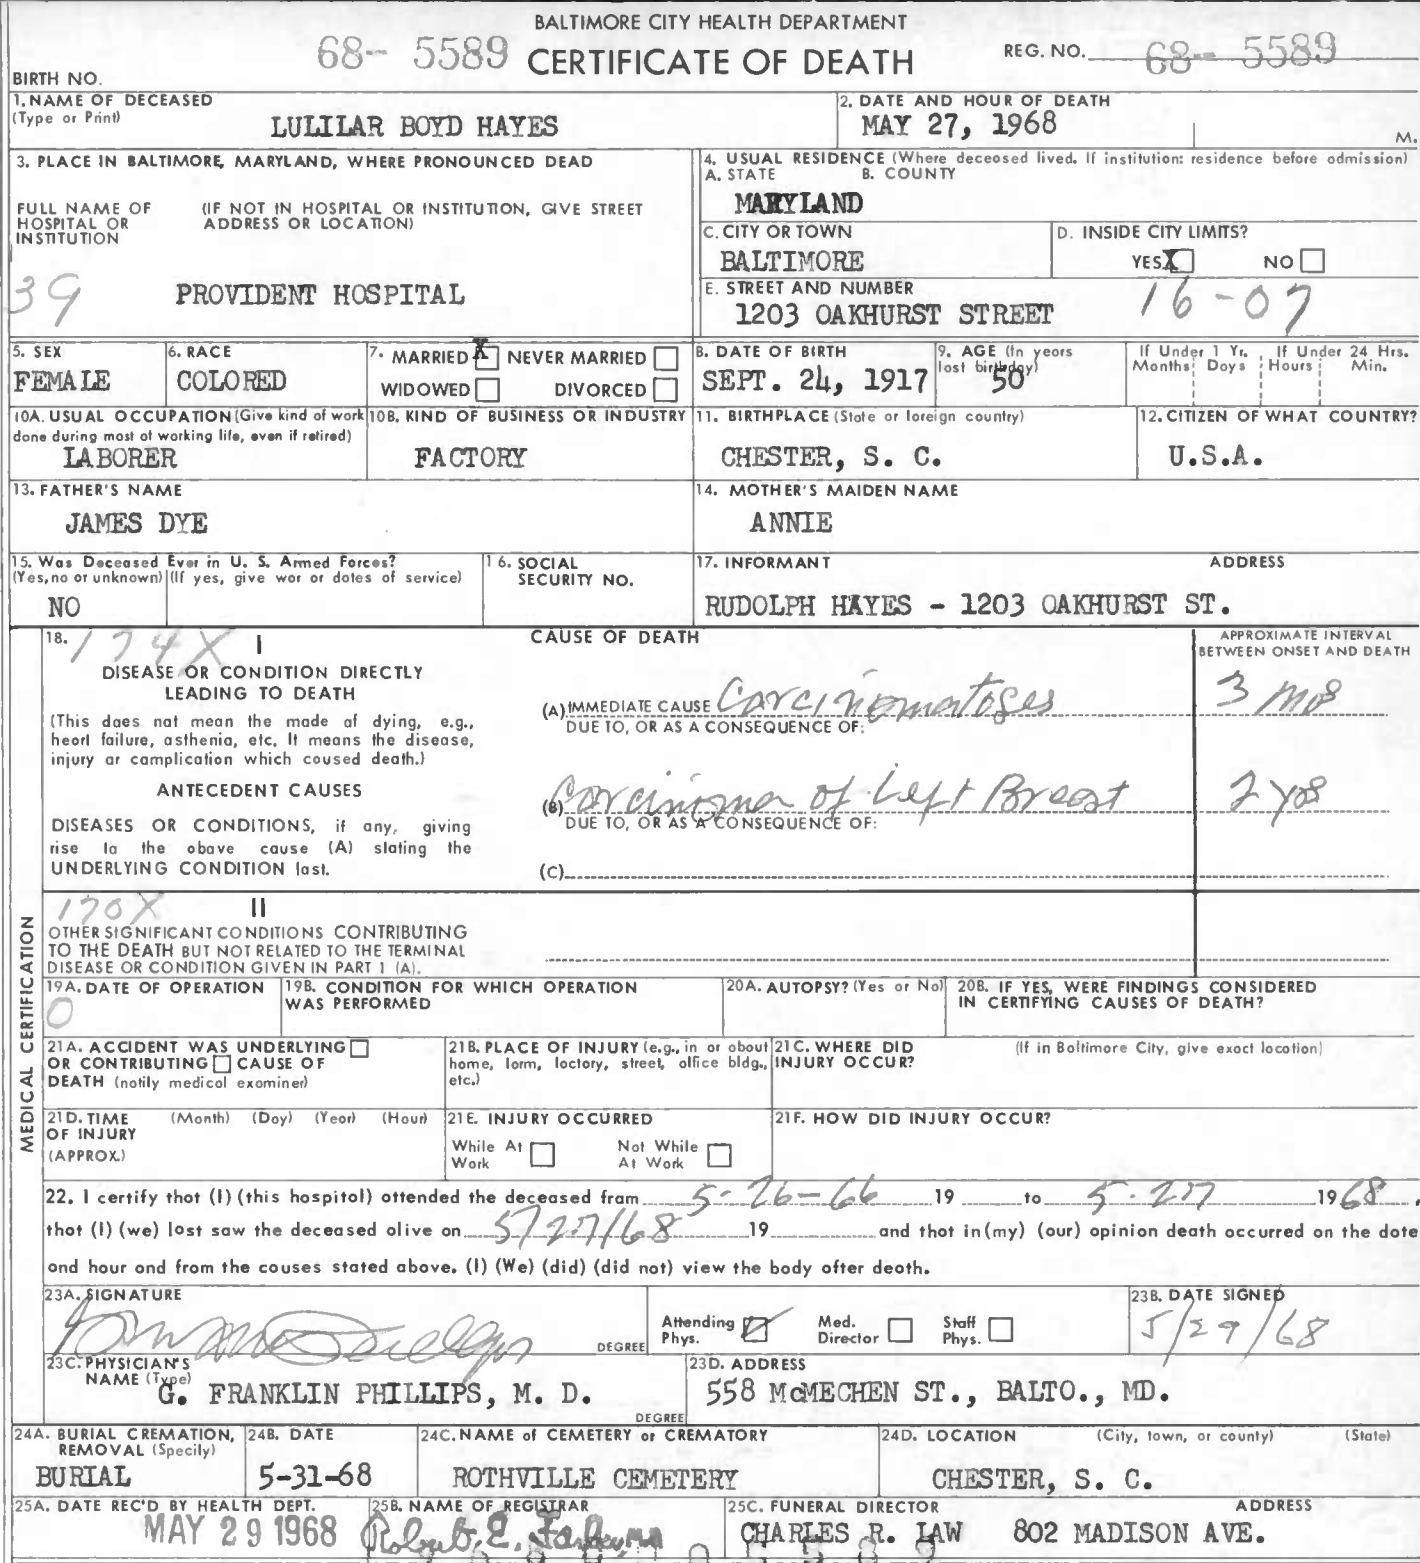 BALTIMORE CITY HEALTH DEPARTMENT
68-- 5589 CERTIFICATE OF DEATH REG. NO. 68-- 5589
BIRTH NO.
1. NAME OF DECEASED
(Type or Print)
LULILAR BOYD HAYES
2. DATE AND HOUR OF DEATH
MAY 27, 1968 M.
3. PLACE IN BALTIMORE, MARYLAND, WHERE PRONOUNCED DEAD
FULL NAME OF (IF NOT IN HOSPITAL OR INSTITUTION, GIVE STREET
HOSPITAL OR ADDRESS OR LOCATION)
INSTITUTION
39 PROVIDENT HOSPITAL
4. USUAL RESIDENCE (Where deceased lived. If institution: residence before admission)
A. STATE B. COUNTY
MARYLAND
C. CITY OR TOWN
BALTIMORE
D. INSIDE CITY LIMITS?
YES X NO
E. STREET AND NUMBER
1203 OAKHURST STREET 16-07
5. SEX
FEMALE
6. RACE
COLORED
7. MARRIED X NEVER MARRIED
WIDOWED DIVORCED
8. DATE OF BIRTH
SEPT. 24, 1917
9. AGE (In years
last birthday)
50
If Under 1 Yr. If Under 24 Hrs.
Months Days Hours Min.
10A. USUAL OCCUPATION (Give kind of work
done during most of working life, even if retired)
LABORER
10B. KIND OF BUSINESS OR INDUSTRY
FACTORY
11. BIRTHPLACE (State or foreign country)
CHESTER, S. C.
12. CITIZEN OF WHAT COUNTRY?
U.S.A.
13. FATHER'S NAME
JAMES DYE
14. MOTHER'S MAIDEN NAME
ANNIE
15. Was Deceased Ever in U. S. Armed Forces?
(Yes, no or unknown) (If yes, give war or dates of service)
NO
16. SOCIAL
SECURITY NO.
17. INFORMANT ADDRESS
RUDOLPH HAYES - 1203 OAKHURST ST.
MEDICAL CERTIFICATION
18. 174X I
DISEASE OR CONDITION DIRECTLY
LEADING TO DEATH
(This does not mean the mode of dying, e.g.,
heart failure, asthenia, etc. It means the disease,
injury or complication which caused death.)
ANTECEDENT CAUSES
DISEASES OR CONDITIONS, if any, giving
rise to the above cause (A) stating the
UNDERLYING CONDITION last.
CAUSE OF DEATH
APPROXIMATE INTERVAL
BETWEEN ONSET AND DEATH
(A) IMMEDIATE CAUSE Carcinomatoses 3 mos
DUE TO, OR AS A CONSEQUENCE OF:
(B) Carcinoma of Left Breast 2 yrs
DUE TO, OR AS A CONSEQUENCE OF:
(C)
170X II
OTHER SIGNIFICANT CONDITIONS CONTRIBUTING
TO THE DEATH BUT NOT RELATED TO THE TERMINAL
DISEASE OR CONDITION GIVEN IN PART 1 (A).
19A. DATE OF OPERATION
0
19B. CONDITION FOR WHICH OPERATION
WAS PERFORMED
20A. AUTOPSY? (Yes or No)
20B. IF YES, WERE FINDINGS CONSIDERED
IN CERTIFYING CAUSES OF DEATH?
21A. ACCIDENT WAS UNDERLYING
OR CONTRIBUTING CAUSE OF
DEATH (notify medical examiner)
21B. PLACE OF INJURY (e.g., in or about
home, farm, factory, street, office bldg.,
etc.)
21C. WHERE DID (If in Baltimore City, give exact location)
INJURY OCCUR?
21D. TIME (Month) (Day) (Year) (Hour)
OF INJURY
(APPROX.)
21E. INJURY OCCURRED
While At Not While
Work At Work
21F. HOW DID INJURY OCCUR?
22. I certify that (I) (this hospital) attended the deceased from 5-26-66 19 to 5-27 1968,
that (I) (we) last saw the deceased alive on 5/27/68 19 and that in (my) (our) opinion death occurred on the date
and hour and from the causes stated above. (I) (We) (did) (did not) view the body after death.
23A. SIGNATURE
DEGREE
Attending Med. Staff
Phys. Director Phys.
23B. DATE SIGNED
5/29/68
23C. PHYSICIAN'S
NAME (Type)
G. FRANKLIN PHILLIPS, M. D.
DEGREE
23D. ADDRESS
558 McMECHEN ST., BALTO., MD.
24A. BURIAL CREMATION,
REMOVAL (Specify)
BURIAL
24B. DATE
5-31-68
24C. NAME of CEMETERY or CREMATORY
ROTHVILLE CEMETERY
24D. LOCATION (City, town, or county) (State)
CHESTER, S. C.
25A. DATE REC'D BY HEALTH DEPT.
MAY 29 1968
25B. NAME OF REGISTRAR
Robert E. Farber, MD
25C. FUNERAL DIRECTOR ADDRESS
CHARLES R. LAW 802 MADISON AVE.